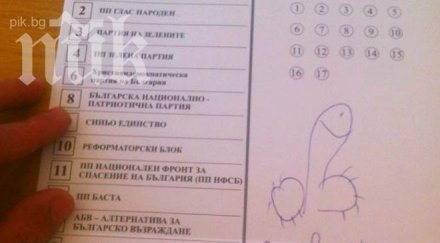 pik.bg
pik
2 ПП ГЛАС НАРОДЕН
3 ПАРТИЯ НА ЗЕЛЕНИТЕ
4 ПП ЗЕЛЕНА ПАРТИЯ
6 Християндемократическа
партия на България
8 БЪЛГАРСКА НАЦИОНАЛНО -
ПАТРИОТИЧНА ПАРТИЯ
СИНЬО ЕДИНСТВО
10 РЕФОРМАТОРСКИ БЛОК
11 ПП НАЦИОНАЛЕН ФРОНТ ЗА
СПАСЕНИЕ НА БЪЛГАРИЯ (ПП НФСБ)
ПП БАСТА
АБВ – АЛТЕРНАТИВА ЗА
БЪЛГАРСКО ВЪЗРАЖДАНЕ
1 2 3 4 5
6 7 8 9 10
11 12 13 14 15
16 17